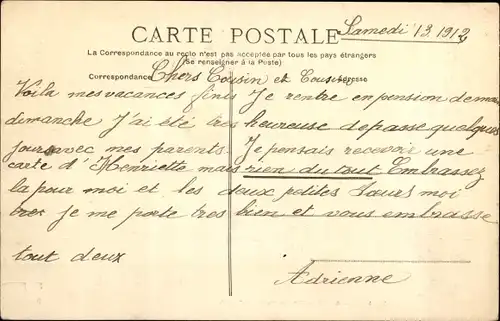 CARTE POSTALE
Samedi 13 1912
La Correspondance au recto n'est pas acceptée par tous les pays étrangers
(Se renseigner à la Poste)
Correspondance Chers Cousin et Cousine Adresse
Voila mes vacances finis Je rentre en pension demain
dimanche J'ai été tres heureuse de passe quelques
jours avec mes parents. Je pensais recevoir une
carte d'Henriette mais rien du tout Embrassez
la pour moi et les deux petites Sœurs moi
je me porte tres bien et vous embrasse
tout deux
Adrienne